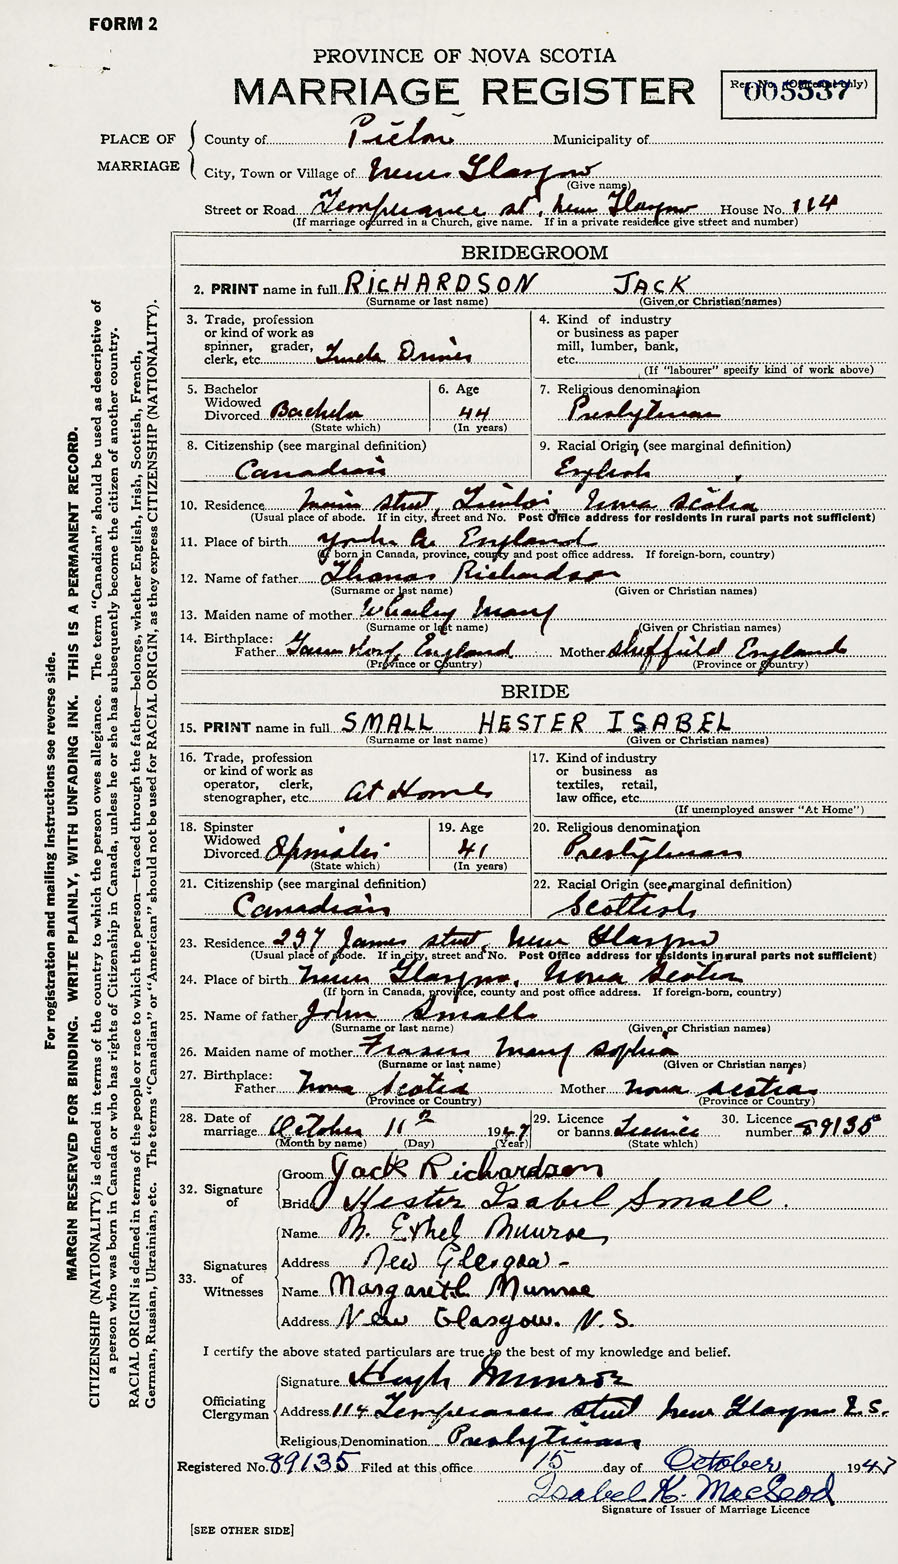 FORM 2
PROVINCE OF NOVA SCOTIA
MARRIAGE REGISTER
Reg. No. (Office use only)
005537
PLACE OF MARRIAGE
County of Pictou Municipality of
City, Town or Village of New Glasgow
(Give name)
Street or Road Temperance st, New Glasgow House No. 114
(If marriage occurred in a Church, give name. If in a private residence give street and number)
BRIDEGROOM
2. PRINT name in full RICHARDSON JACK
(Surname or last name) (Given or Christian names)
3. Trade, profession or kind of work as spinner, grader, clerk, etc.
4. Kind of industry or business as paper mill, lumber, bank, etc.
(If "labourer" specify kind of work above)
5. Bachelor Widowed Divorced Bachelor
(State which)
6. Age 44
(In years)
7. Religious denomination Presbyterian
8. Citizenship (see marginal definition) Canadian
9. Racial Origin (see marginal definition) English
10. Residence Main Street, Nova Scotia
(Usual place of abode. If in city, street and No. Post Office address for residents in rural parts not sufficient)
11. Place of birth York Co England
(If born in Canada, province, county and post office address. If foreign-born, country)
12. Name of father Thomas Richardson
(Surname or last name) (Given or Christian names)
13. Maiden name of mother Mary
(Surname or last name) (Given or Christian names)
14. Birthplace: Father England Mother Sheffield England
(Province or Country) (Province or Country)
BRIDE
15. PRINT name in full SMALL HESTER ISABEL
(Surname or last name) (Given or Christian names)
16. Trade, profession or kind of work as operator, clerk, stenographer, etc. At Home
17. Kind of industry or business as textiles, retail, law office, etc.
(If unemployed answer "At Home")
18. Spinster Widowed Divorced Spinster
(State which)
19. Age 41
(In years)
20. Religious denomination Presbyterian
21. Citizenship (see marginal definition) Canadian
22. Racial Origin (see marginal definition) Scottish
23. Residence 297 James street, New Glasgow
(Usual place of abode. If in city, street and No. Post Office address for residents in rural parts not sufficient)
24. Place of birth New Glasgow, Nova Scotia
(If born in Canada, province, county and post office address. If foreign-born, country)
25. Name of father John Small
(Surname or last name) (Given or Christian names)
26. Maiden name of mother Fraser Mary Sophia
(Surname or last name) (Given or Christian names)
27. Birthplace: Father Nova Scotia Mother Nova Scotia
(Province or Country) (Province or Country)
28. Date of marriage October 11 1947
(Month by name) (Day) (Year)
29. Licence or banns Licence
(State which)
30. Licence number 89135
32. Signature of
Groom Jack Richardson
Bride Hester Isabel Small.
33. Signatures of Witnesses
Name M. Ethel Munroe
Address New Glasgow -
Name Margareth Munroe
Address New Glasgow. N.S.
I certify the above stated particulars are true to the best of my knowledge and belief.
Officiating Clergyman
Signature Hugh Munroe
Address 114 Temperance street New Glasgow N.S.
Religious Denomination Presbyterian
Registered No. 89135 Filed at this office 15 day of October 1947
Isabel K. MacLeod
Signature of Issuer of Marriage Licence
[SEE OTHER SIDE]
For registration and mailing instructions see reverse side.
MARGIN RESERVED FOR BINDING. WRITE PLAINLY, WITH UNFADING INK. THIS IS A PERMANENT RECORD.
CITIZENSHIP (NATIONALITY) is defined in terms of the country to which the person owes allegiance. The term "Canadian" should be used as descriptive of
a person who was born in Canada or who has rights of Citizenship in Canada, unless he or she has subsequently become the citizen of another country.
RACIAL ORIGIN is defined in terms of the people or race to which the person—traced through the father—belongs, whether English, Irish, Scottish, French,
German, Russian, Ukrainian, etc. The terms "Canadian" or "American" should not be used for RACIAL ORIGIN, as they express CITIZENSHIP (NATIONALITY).